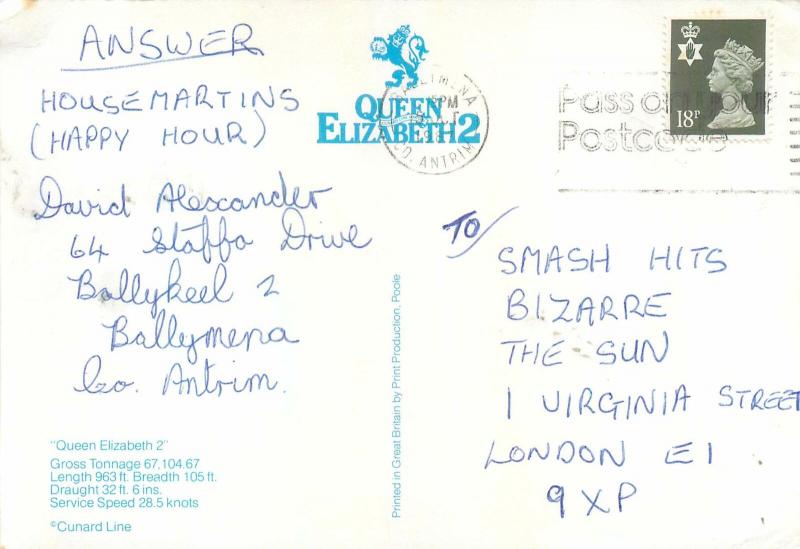 ANSWER
HOUSEMARTINS
(HAPPY HOUR)
David Alexander
64 Staffa Drive
Ballykeel 2
Ballymena
Co. Antrim.
"Queen Elizabeth 2"
Gross Tonnage 67,104.67
Length 963 ft. Breadth 105 ft.
Draught 32 ft. 6 ins.
Service Speed 28.5 knots
©Cunard Line
QUEEN
ELIZABETH 2
BALLYMENA
PM
CO. ANTRIM
Printed in Great Britain by Print Production, Poole
Pass on your
Postcode
18P
TO/
SMASH HITS
BIZARRE
THE SUN
1 VIRGINIA STREET
LONDON E1
9XP